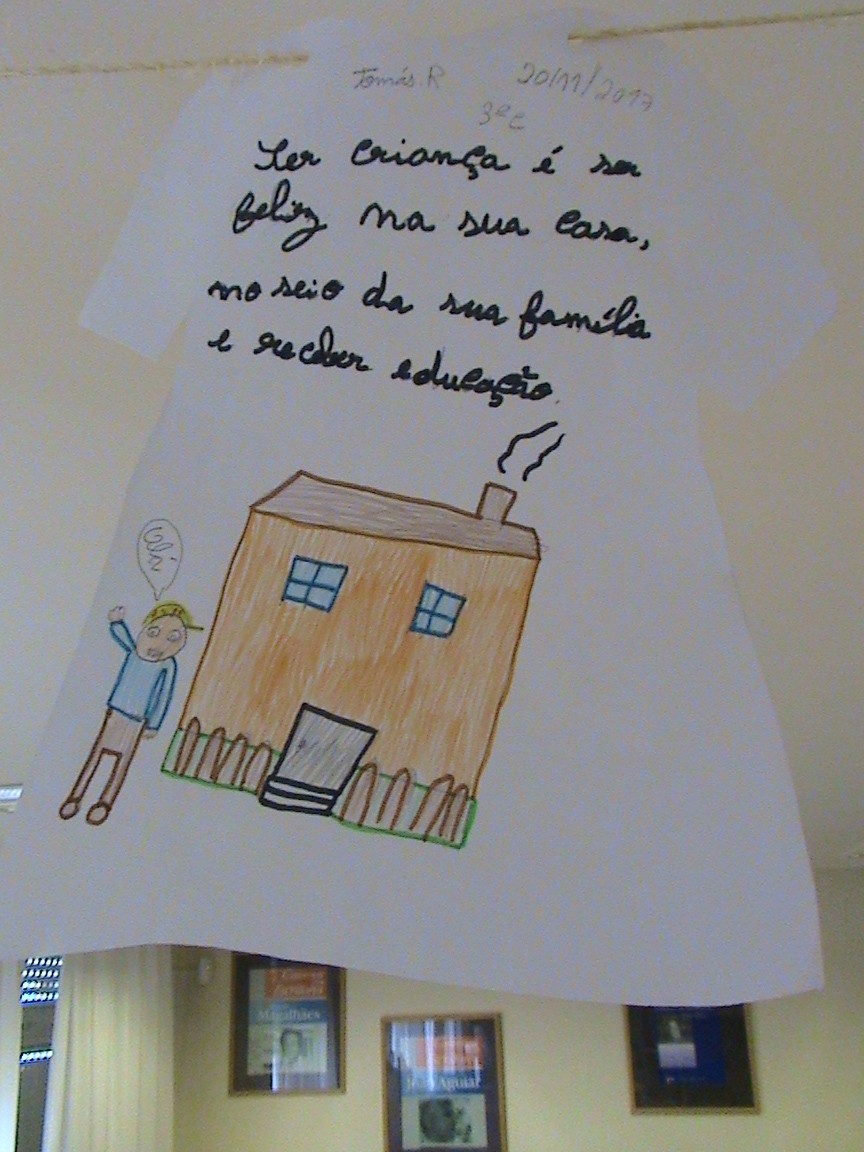 Tomás. R 20/11/2017
3º C
Ser criança é ser
feliz na sua casa,
no seio da sua família
e receber educação.
Olá
Magalhães
João Aguiar